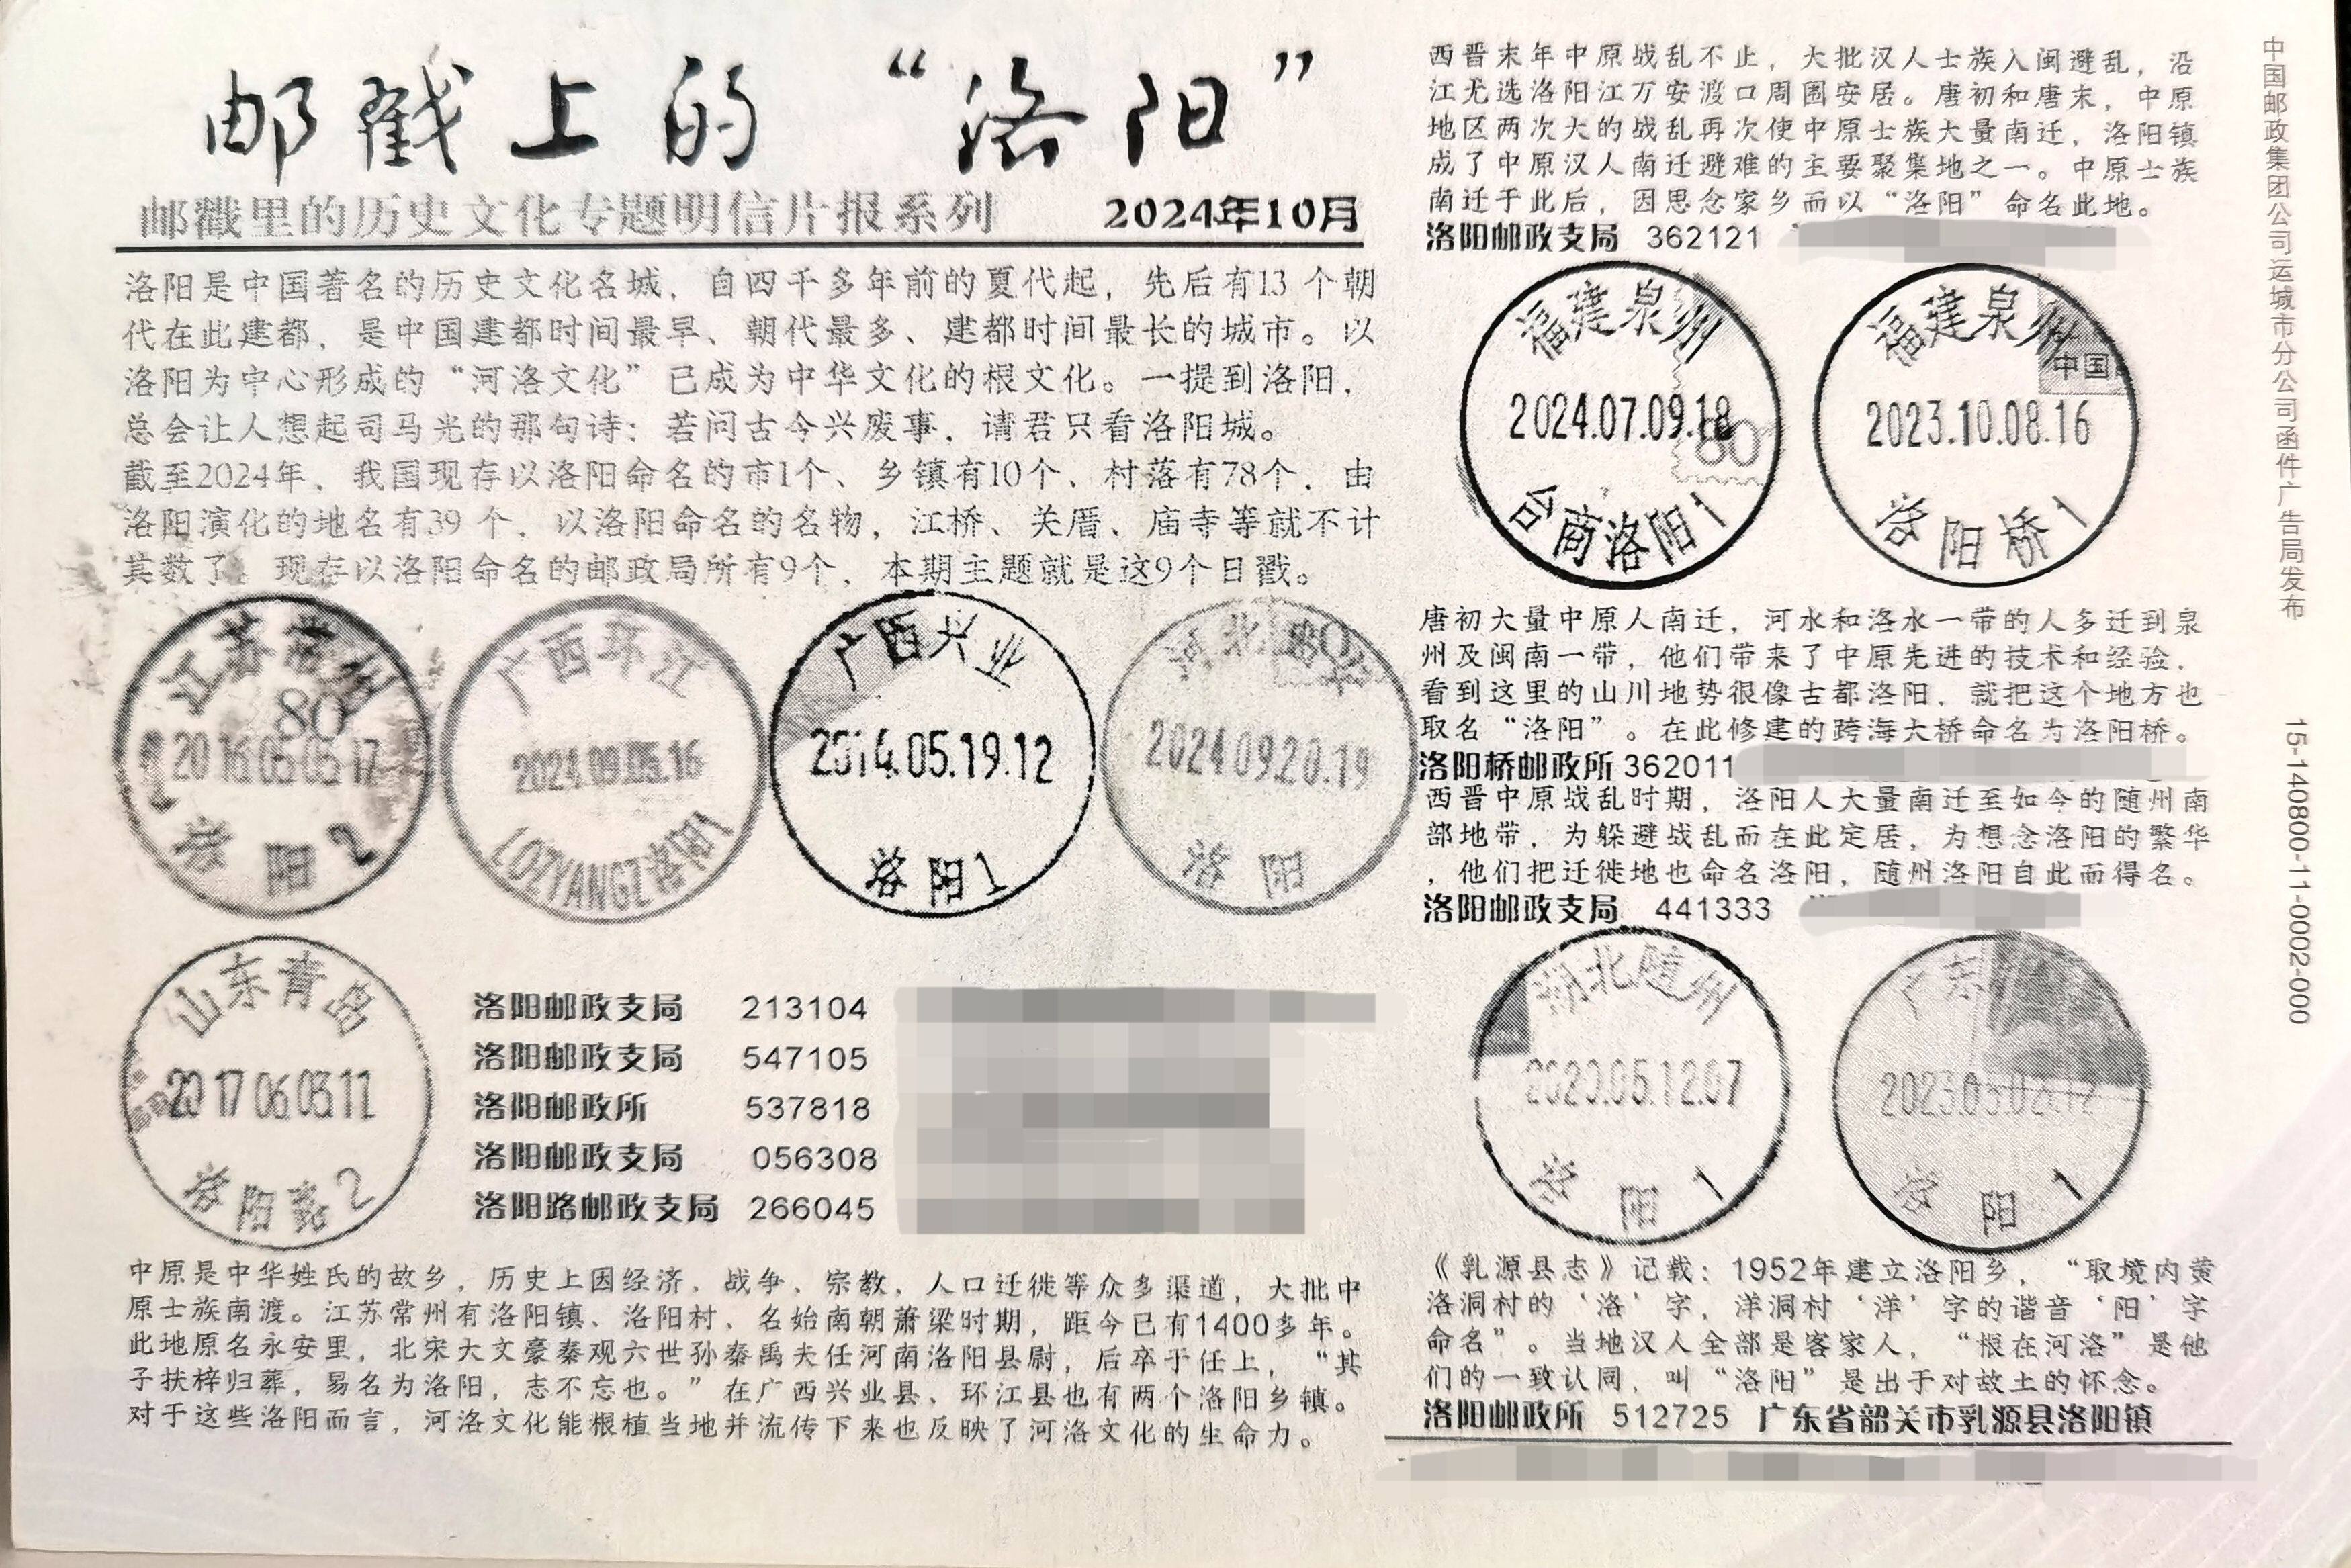 邮戳上的“洛阳”
邮戳里的历史文化专题明信片报系列 2024年10月
洛阳是中国著名的历史文化名城，自四千多年前的夏代起，先后有13个朝
代在此建都，是中国建都时间最早、朝代最多、建都时间最长的城市。以
洛阳为中心形成的“河洛文化”已成为中华文化的根文化。一提到洛阳，
总会让人想起司马光的那句诗：若问古今兴废事，请君只看洛阳城。
截至2024年，我国现存以洛阳命名的市1个、乡镇有10个、村落有78个，由
洛阳演化的地名有39个，以洛阳命名的名物，江桥、关厝、庙寺等就不计
其数了。现存以洛阳命名的邮政局所有9个，本期主题就是这9个日戳。
江苏常州
80
2016.05.05.17
洛阳2
广西环江
2024.09.05.16
LOZYANGZ洛阳1
广西兴业
2014.05.19.12
洛阳1
80
2024.09.20.19
洛阳
山东青岛
2017.06.03.11
洛阳路2
洛阳邮政支局 213104
洛阳邮政支局 547105
洛阳邮政所 537818
洛阳邮政支局 056308
洛阳路邮政支局 266045
中原是中华姓氏的故乡，历史上因经济、战争、宗教，人口迁徙等众多渠道，大批中
原士族南渡。江苏常州有洛阳镇、洛阳村、名始南朝萧梁时期，距今已有1400多年。
此地原名永安里，北宋大文豪秦观六世孙秦禹夫任河南洛阳县尉，后卒于任上，“其
子扶梓归葬，易名为洛阳，志不忘也。”在广西兴业县、环江县也有两个洛阳乡镇。
对于这些洛阳而言，河洛文化能根植当地并流传下来也反映了河洛文化的生命力。
西晋末年中原战乱不止，大批汉人士族入闽避乱，沿
江尤选洛阳江万安渡口周围安居。唐初和唐末，中原
地区两次大的战乱再次使中原士族大量南迁，洛阳镇
成了中原汉人南迁避难的主要聚集地之一。中原士族
南迁于此后，因思念家乡而以“洛阳”命名此地。
洛阳邮政支局 362121
福建泉州
2024.07.09.18
80
台商洛阳1
福建泉州
中国
2023.10.08.16
洛阳桥1
唐初大量中原人南迁，河水和洛水一带的人多迁到泉
州及闽南一带，他们带来了中原先进的技术和经验，
看到这里的山川地势很像古都洛阳，就把这个地方也
取名“洛阳”。在此修建的跨海大桥命名为洛阳桥。
洛阳桥邮政所 362011
西晋中原战乱时期，洛阳人大量南迁至如今的随州南
部地带，为躲避战乱而在此定居，为想念洛阳的繁华
，他们把迁徙地也命名洛阳，随州洛阳自此而得名。
洛阳邮政支局 441333
湖北随州
2020.05.12.07
洛阳1
广东
2023.03.02.12
洛阳1
《乳源县志》记载：1952年建立洛阳乡，“取境内黄
洛洞村的‘洛’字，洋洞村‘洋’字的谐音‘阳’字
命名”。当地汉人全部是客家人，“根在河洛”是他
们的一致认同，叫“洛阳”是出于对故土的怀念。
洛阳邮政所 512725 广东省韶关市乳源县洛阳镇
中国邮政集团公司运城市分公司函件广告局发布
15-140800-11-0002-000